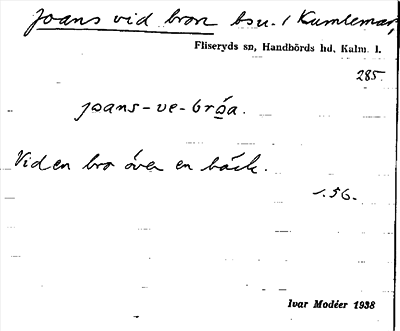 Joans vid bron bsu. / Kumlemar,
Fliseryds sn, Handbörds hd, Kalm. l.
285.
joans-ve-bróa.
Vid en bro över en bäck.
1.56.
Ivar Modéer 1938